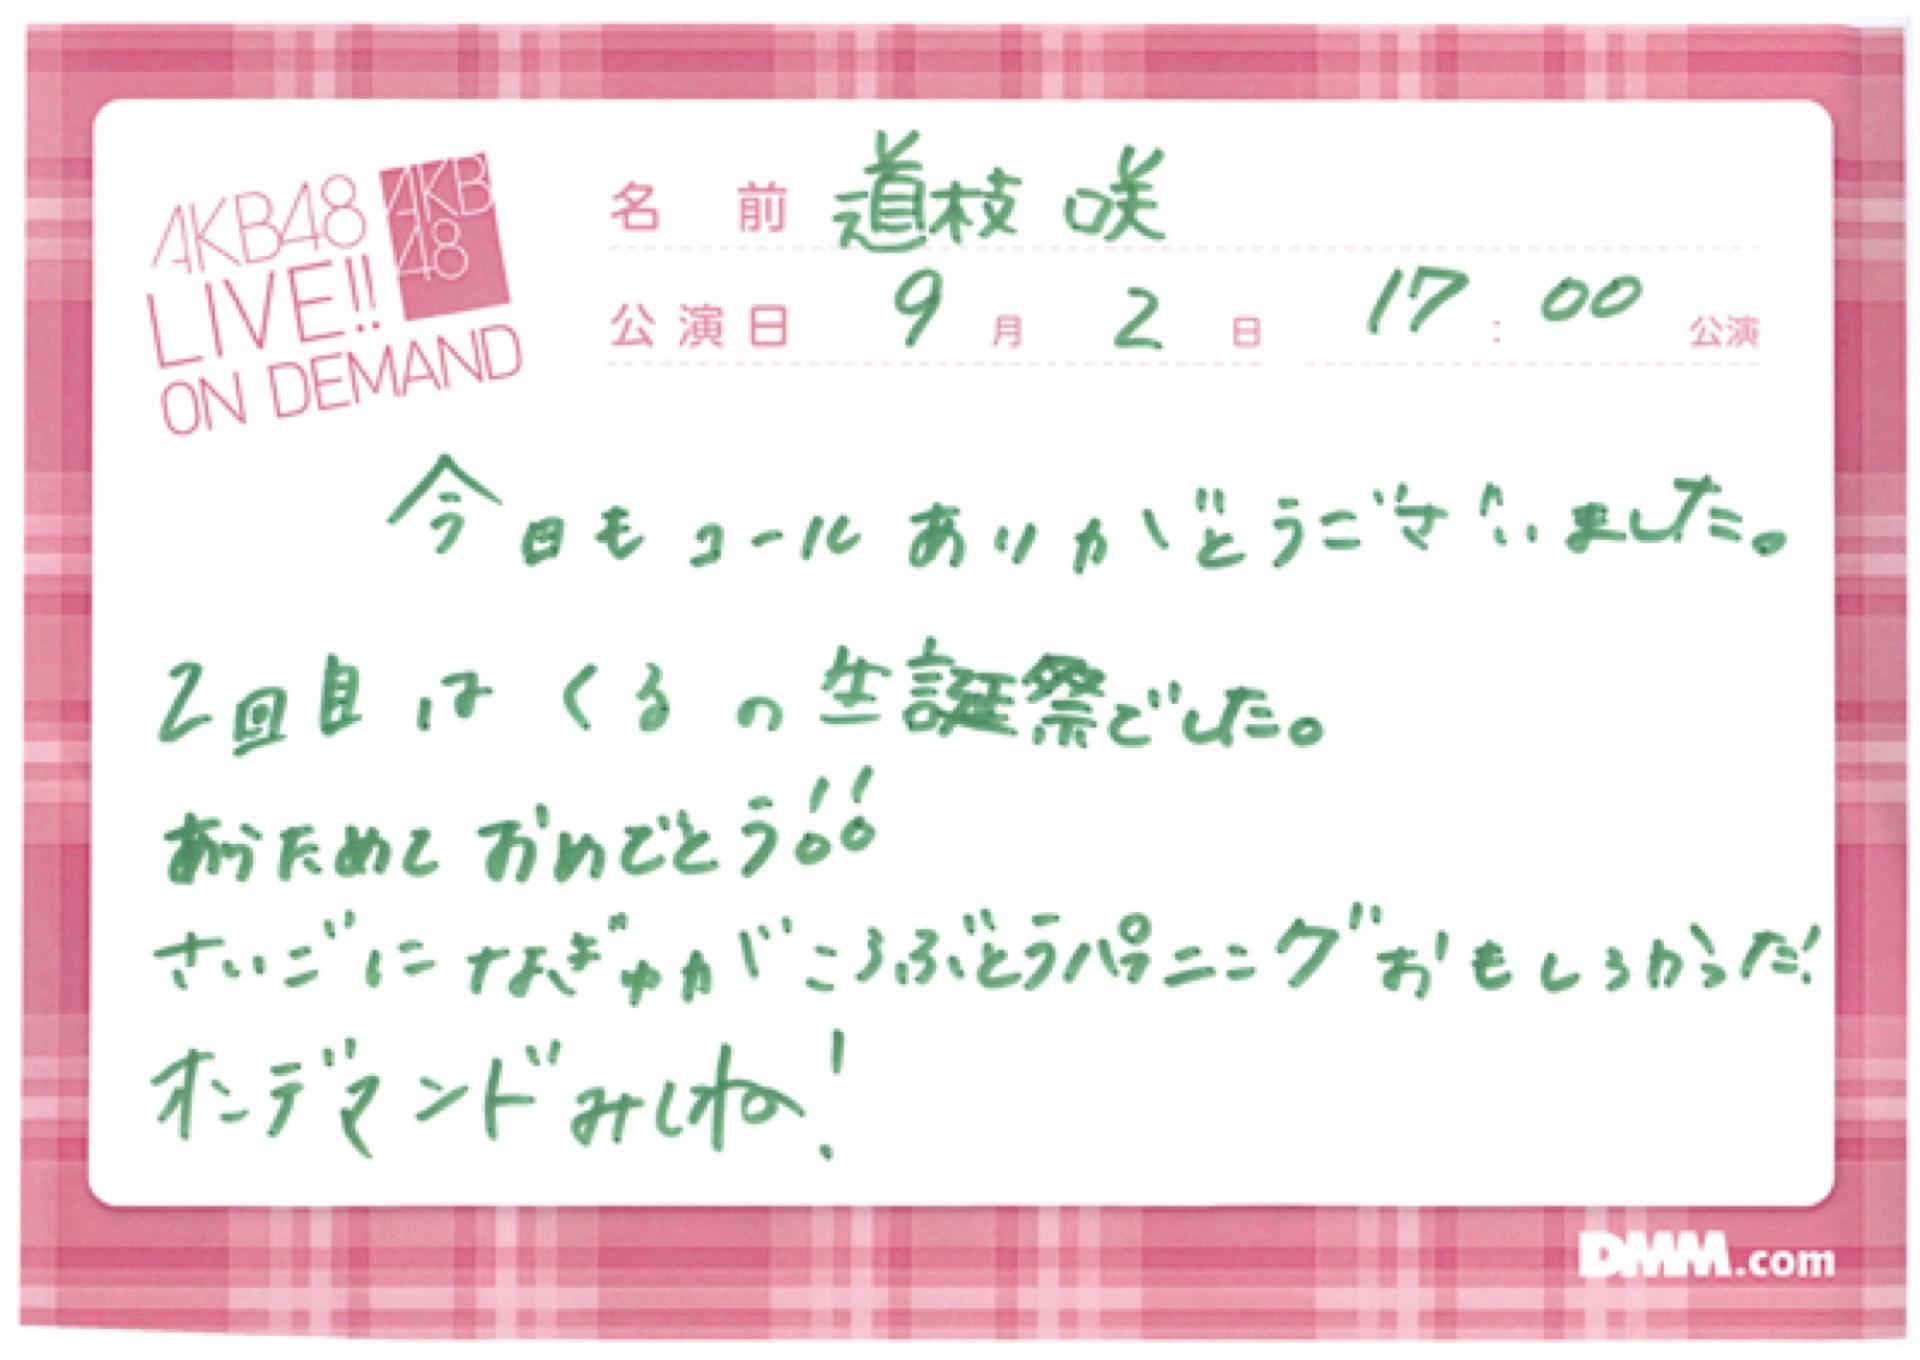 AKB48
LIVE!!
ON DEMAND
AKB
48
名前 道枝 咲
公演日 9月 2日 17:00 公演
今日もコールありがとうございました。
2回目はくるの生誕祭でした。
あらためておめでとう!!
さいごになぎゅがころぶとうハプニングおもしろかった!
オンデマンドみしね!
DMM.com